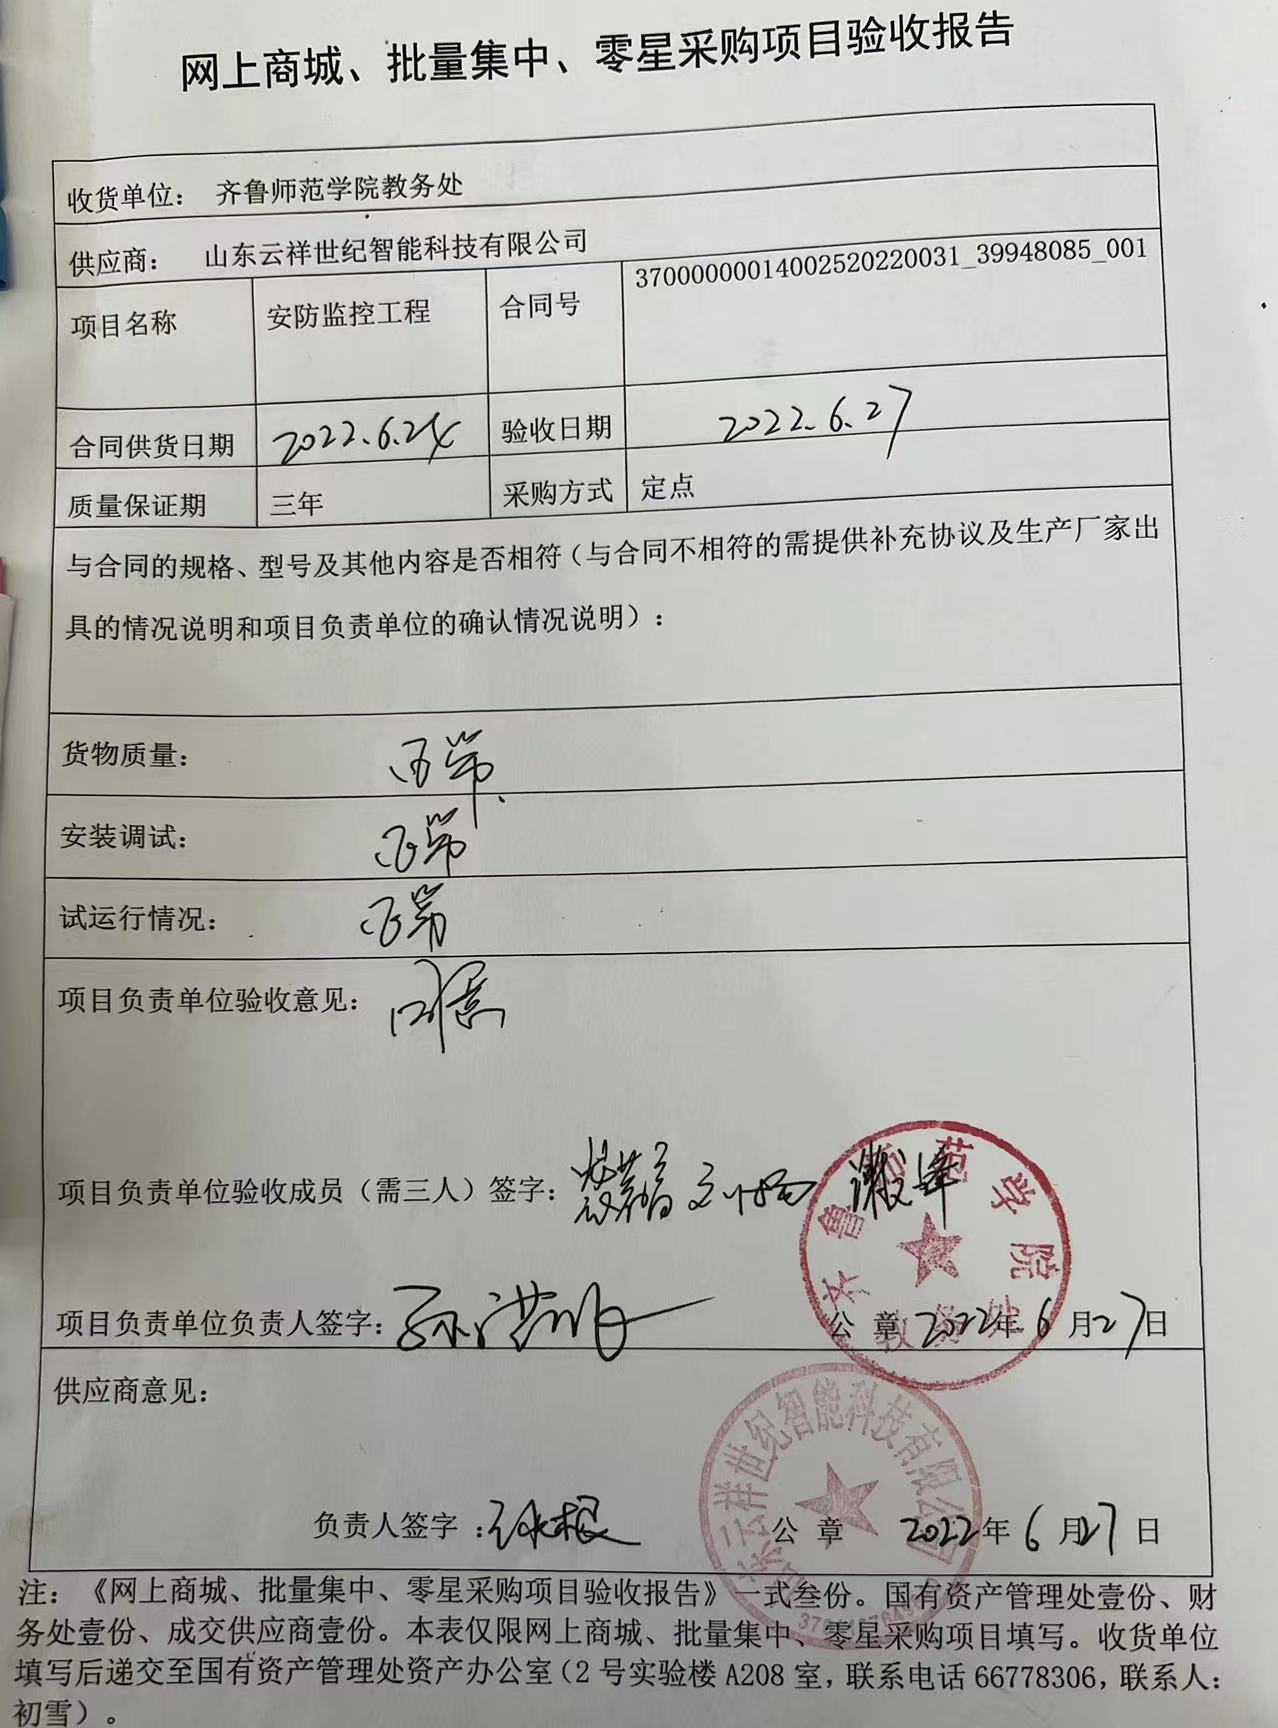 网上商城、批量集中、零星采购项目验收报告
收货单位： 齐鲁师范学院教务处
供应商： 山东云祥世纪智能科技有限公司
项目名称 安防监控工程 合同号 37000000014002520220031_39948085_001
合同供货日期 2022.6.24 验收日期 2022.6.27
质量保证期 三年 采购方式 定点
与合同的规格、型号及其他内容是否相符（与合同不相符的需提供补充协议及生产厂家出
具的情况说明和项目负责单位的确认情况说明）：
货物质量： 正常
安装调试： 正常
试运行情况： 正常
项目负责单位验收意见： 同意
项目负责单位验收成员（需三人）签字：
齐鲁师范学院
教务处
项目负责单位负责人签字： 公 章 2022年 6 月27日
供应商意见：
山东云祥世纪智能科技有限公司
负责人签字 ： 公 章 2022年 6 月27 日
注：《网上商城、批量集中、零星采购项目验收报告》一式叁份。国有资产管理处壹份、财
务处壹份、成交供应商壹份。本表仅限网上商城、批量集中、零星采购项目填写。收货单位
填写后递交至国有资产管理处资产办公室（2 号实验楼 A208 室，联系电话 66778306，联系人：
初雪）。